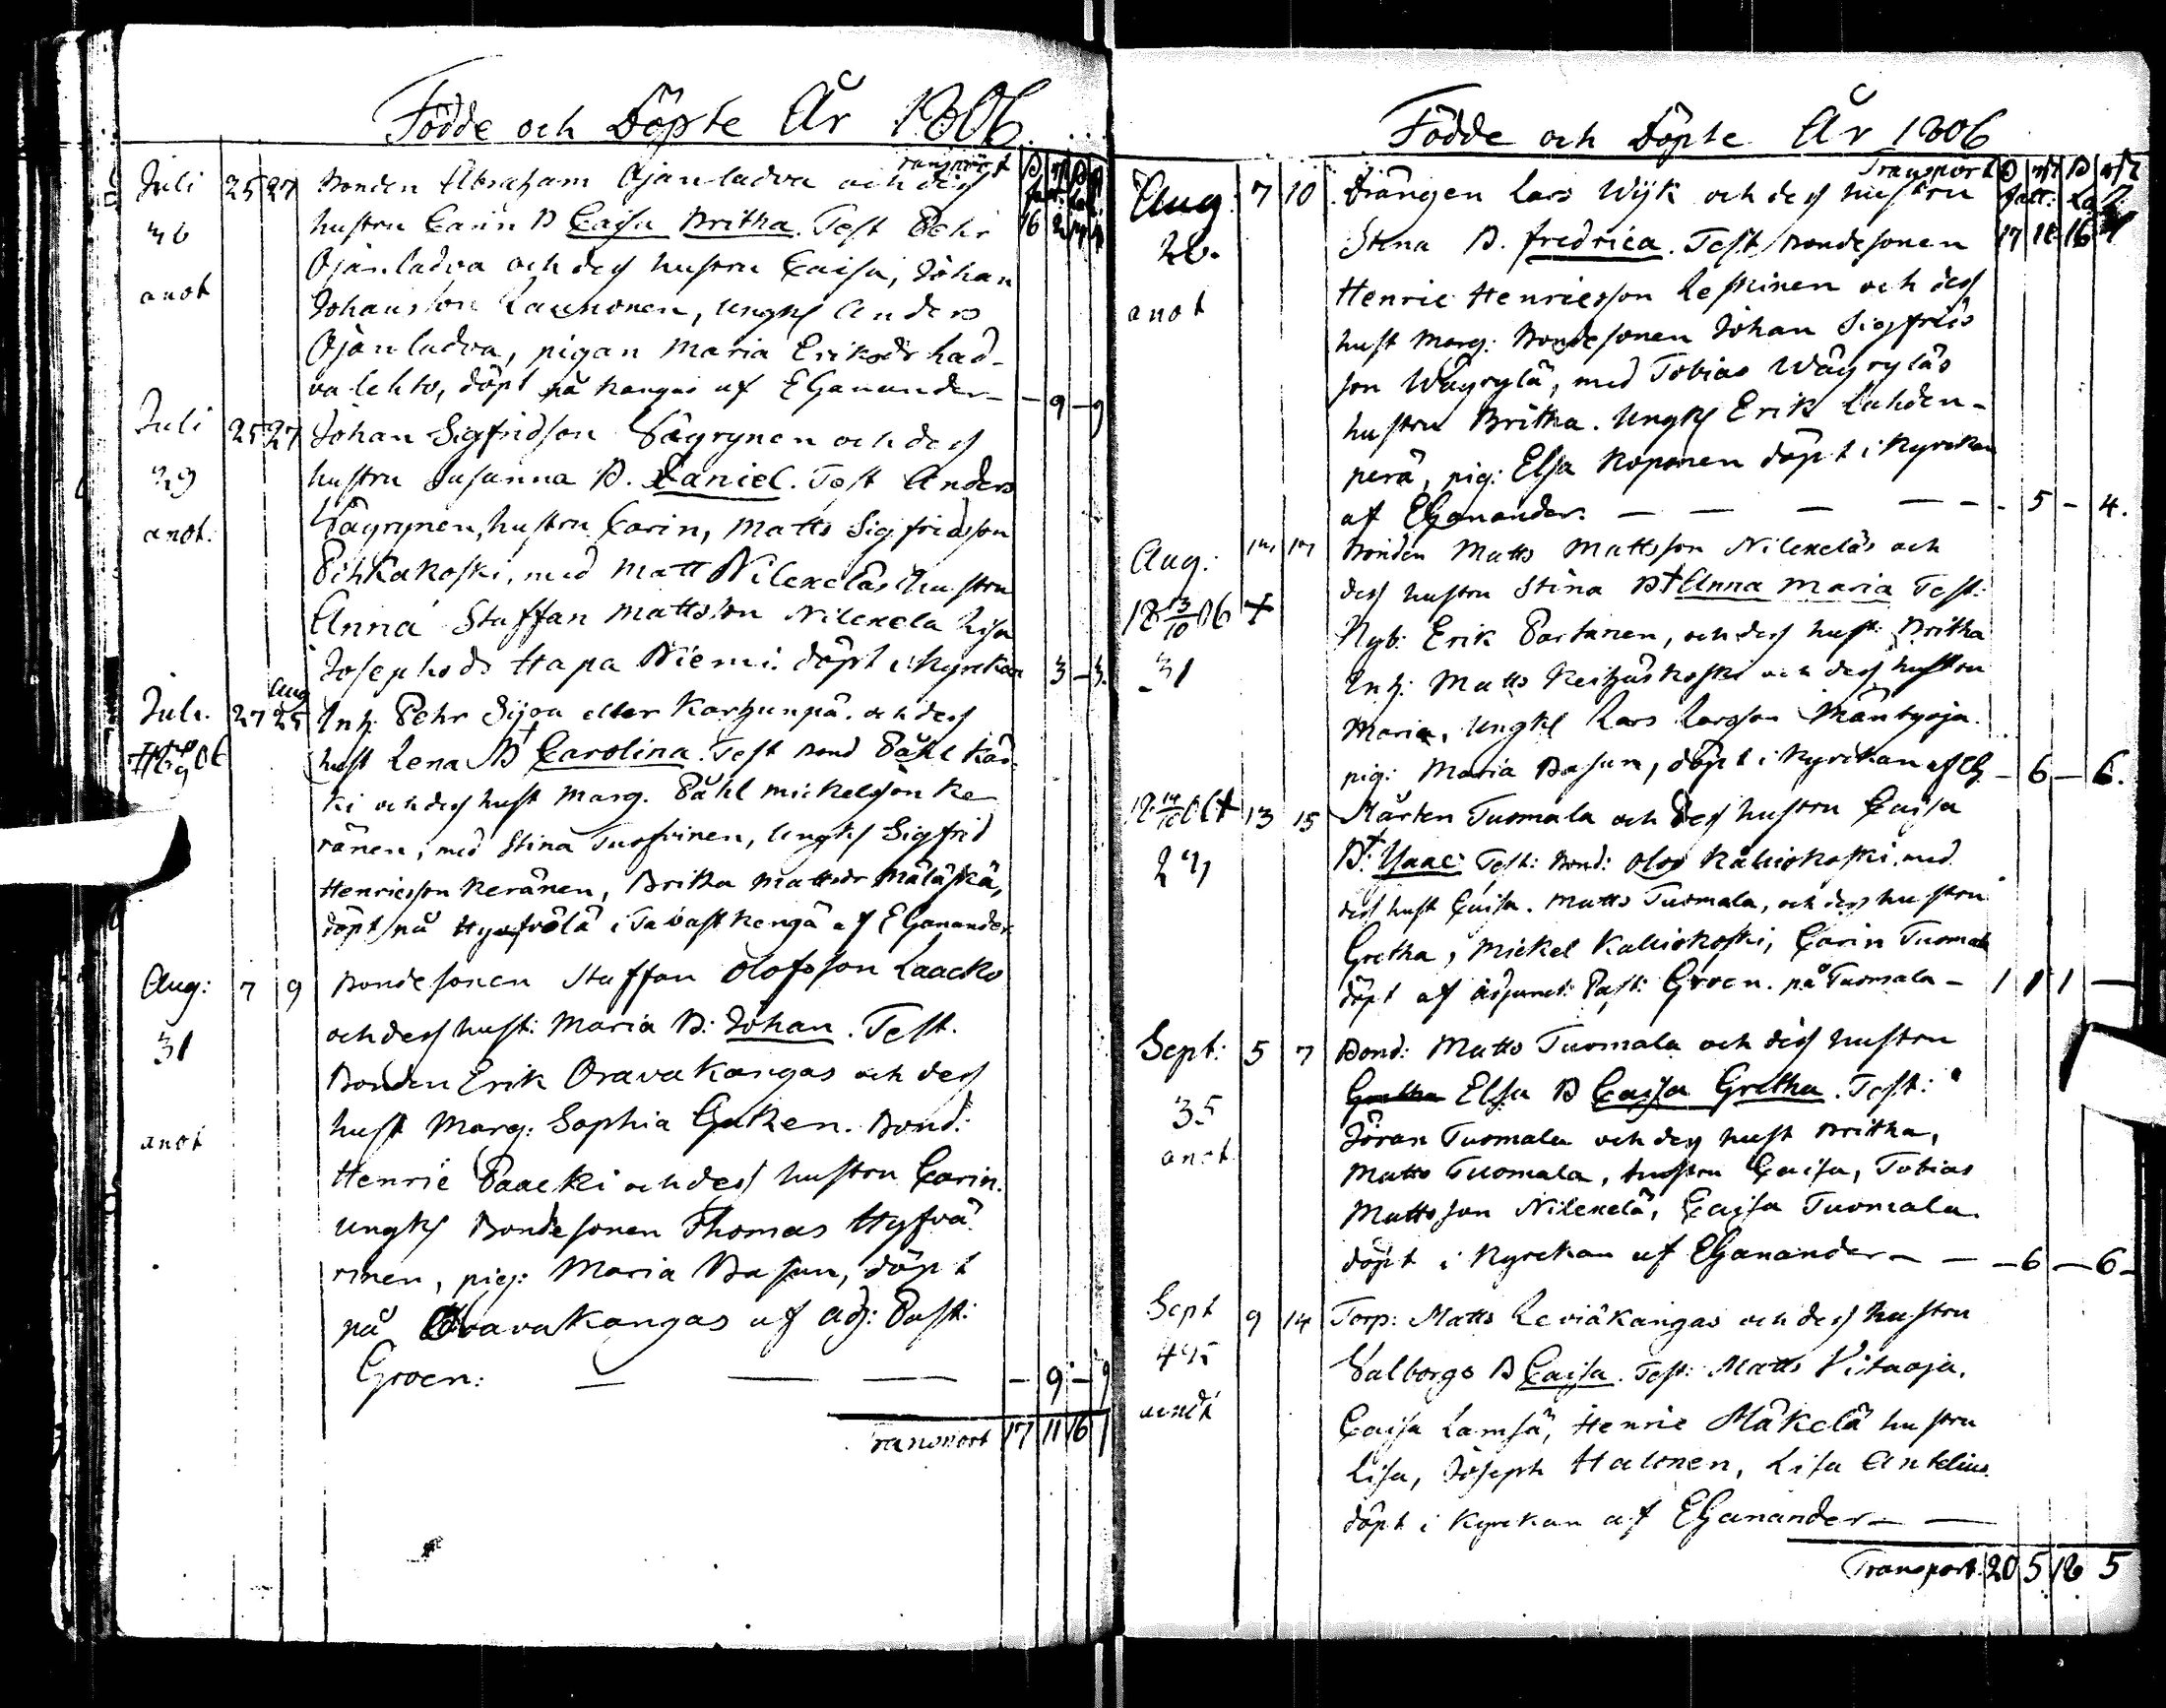 Födde och Döpte År 1806
Transport
Juli 25 27 Bonden Abraham Ojanladva och dess
36 hustru Carin B Caisa Britha. Test Pehr 16 2
Ojanladva och dess hustru Caisa, Johan
anot Johansson Lauhonen, ungk Anders
Ojanladva, pigan Maria Eriksdr Lad-
va lehto, döpt på Kangas af EGanander — — 9 — 9
Juli 25 27 Johan Sigfridson Väyrynen och dess
29 hustru Susanna B. Daniel. Test Anders
anot. Väyrynen, hustru Carin, Matts Sigfridsson
Pihkakoski, med Matt Nilexeläs hustru
Anna Staffan Mattsson Nilexela Lisa
Josephsdr Hapa Niemi. döpt i Kyrckan 3 — 3.
Aug
Juli. 27 25 Inh. Pehr Sijoa eller Karhunpä. och dess
hust Lena B † Carolina. Test Bond Påhl Kar-
ki och dess hust Marg. Påhl Mickelsson Ke
ränen, med Stina Tusfvinen, ungk Sigfrid
Henricsson Keränen, Britha Mattsdr Mäläskä,
döpt på Hyvfvölä i Tavastkengä af EGanander
Aug: 7 9 Bondesonen Staffan Olofsson Laacko
31 och dess hust: Maria B: Johan. Test.
Bonden Erik Oravakangas och dess
anot hust Marg: Sophia Gaken. Bond:
Henric Paacki och dess hustru Carin.
ungk Bondesonen Thomas Hyfvä
rinen, pig: Maria Basun, döpt
på Oravakangas af adj: Past:
Groen: — — — — 9 — 9
Transport 17 11 16 1
Födde och Döpte År 1806
Transport
Aug: 7 10 Drängen Lars Wijk och dess hustru
26. Stina B. Fredrica. Test Bondesonen 17 11 16 1
anot Henric Henricsson Leskinen och dess
hust Marg: Bondesonen Johan Sigfrids
son Wäyrylä, med Tobias Wäyryläs
hustru Britha. Ungk Erik Lahden-
perä, pig: Elsa Koponen döpt i Kyrckan
af EGanander. — — — — — 5 — 4.
Aug: 17 Bonden Matts Mattsson Nilexeläs och
18 13/10 06 + dess hustru Stina B † Anna Maria Test:
31 Nyb: Erik Partanen, och dess hust: Britha
Inh: Matts Keihäskoski och dess hustru
Maria, Ungk Lars Larsson Mäntyoja.
pig: Maria Basun, döpt i Kyrckan af EG — 6 — 6.
13 15 Mårten Tuomala och dess hustru Caisa
27 B: † Ysaac Test: Bond: Olov Kalliokoski med
dess hust Caisa. Matts Tuomala, och dess hustru
Gretha, Mickel Kalliokoski, Carin Tuomala
döpt af Adjunct: Past: Groen. på Tuomala — 1 1 1 —
Sept: 5 7 Bond: Matts Tuomala och dess hustru
35 Gretha Elsa B Caisa Gretha. Test:
anot Jöran Tuomala och dess hust Britha,
Matts Tuomala, hustru Caisa, Tobias
Mattsson Nilexelä, Caisa Tuomala.
döpt i Kyrckan af EGanander — — — 6 — 6 —
Sept 9 14 Torp: Matts Leviäkangas och dess hustru
45 Valborgs B Caisa. Test: Matts Vitaoja.
anot Caisa Lamsä, Henric Mäkelä hustru
Lisa, Joseph Halonen, Lisa Antelius.
döpt i Kyrckan af EGanander — —
Transport 20 5 18 5